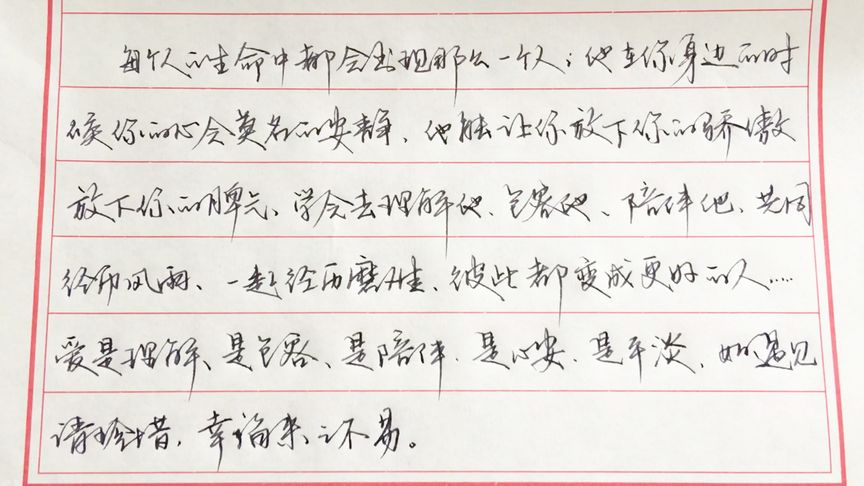 每个人的生命中都会出现那么一个人；他在你身边的时
候你的心会莫名的安静、他能让你放下你的骄傲
放下你的脾气、学会去理解他、包容他、陪伴他、共同
经历风雨、一起经历磨难、彼此都变成更好的人……
爱是理解、是包容、是陪伴、是心安、是平淡、如遇见
请珍惜，幸福来之不易。